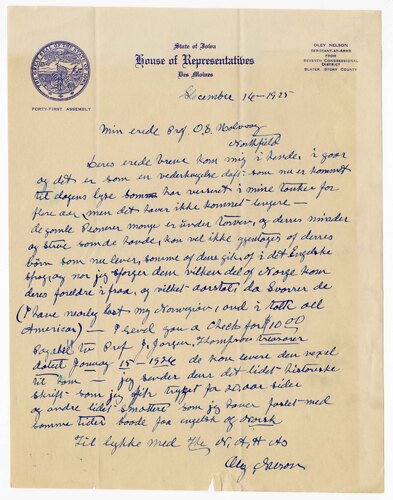 State of Iowa
House of Representatives
Des Moines
FORTY-FIRST ASSEMBLY
OLEY NELSON
SERGEANT-AT-ARMS
FROM
SEVENTH CONGRESSIONAL
DISTRICT
SLATER, STORY COUNTY
December 14 - 1925
Min erede Prof. O. E.
Northfield
Deres erede breve kom mig i hende i gaar
og dit er som en daft som nu er kommet
til dagens lyse som har verseret i mine tanker for
flere aar men dit haver ikke kommet lengere -
de gamle Pionerer mange er under torven, og deres minder
og som de havde, kan vel ikke gentages of deres
börn som nu lever, somme of dem gik of i dit Engelske
sprog, og nor jeg spörger dem vilken del of Norge kom
deres foreldre i fraa, og vilket aarstal, da Svorrer de
(I have nearly lost my Norwegian, and i talk all
American) - I send you a Check for $1000
Payabel to Prof J. Jorgen Thompson treasorer
dated January - 15 - 1926 de kan levere den vexel
til ham - jeg sender dem dit lidet historiske
skrift som jeg fik trygt for 20 aar siden
og andre lidet smatteri som jeg haver pustet med
somme tider baade paa engelsk og Norsk
Til lykke med The N, A, H As
Oley Nelson